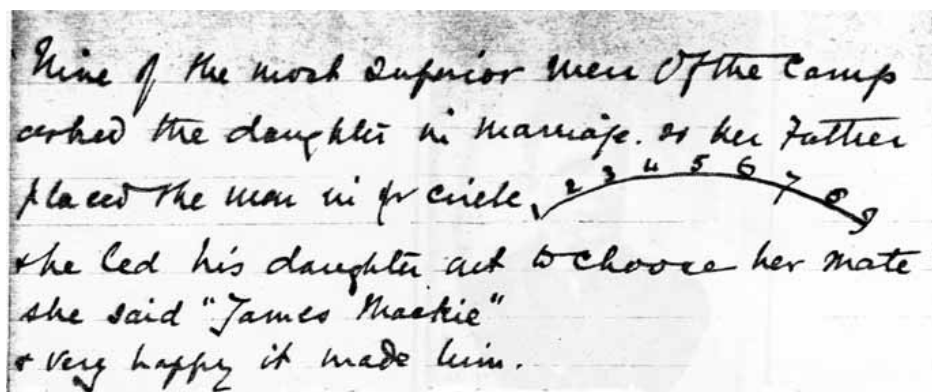 Nine of the most superior men Of the Camp
asked the daughter in marriage. so her Father
placed the men in ¼ circle 1 2 3 4 5 6 7 8 9
& he led his daughter out to choose her mate
she said "James Mackie"
& very happy it made him.